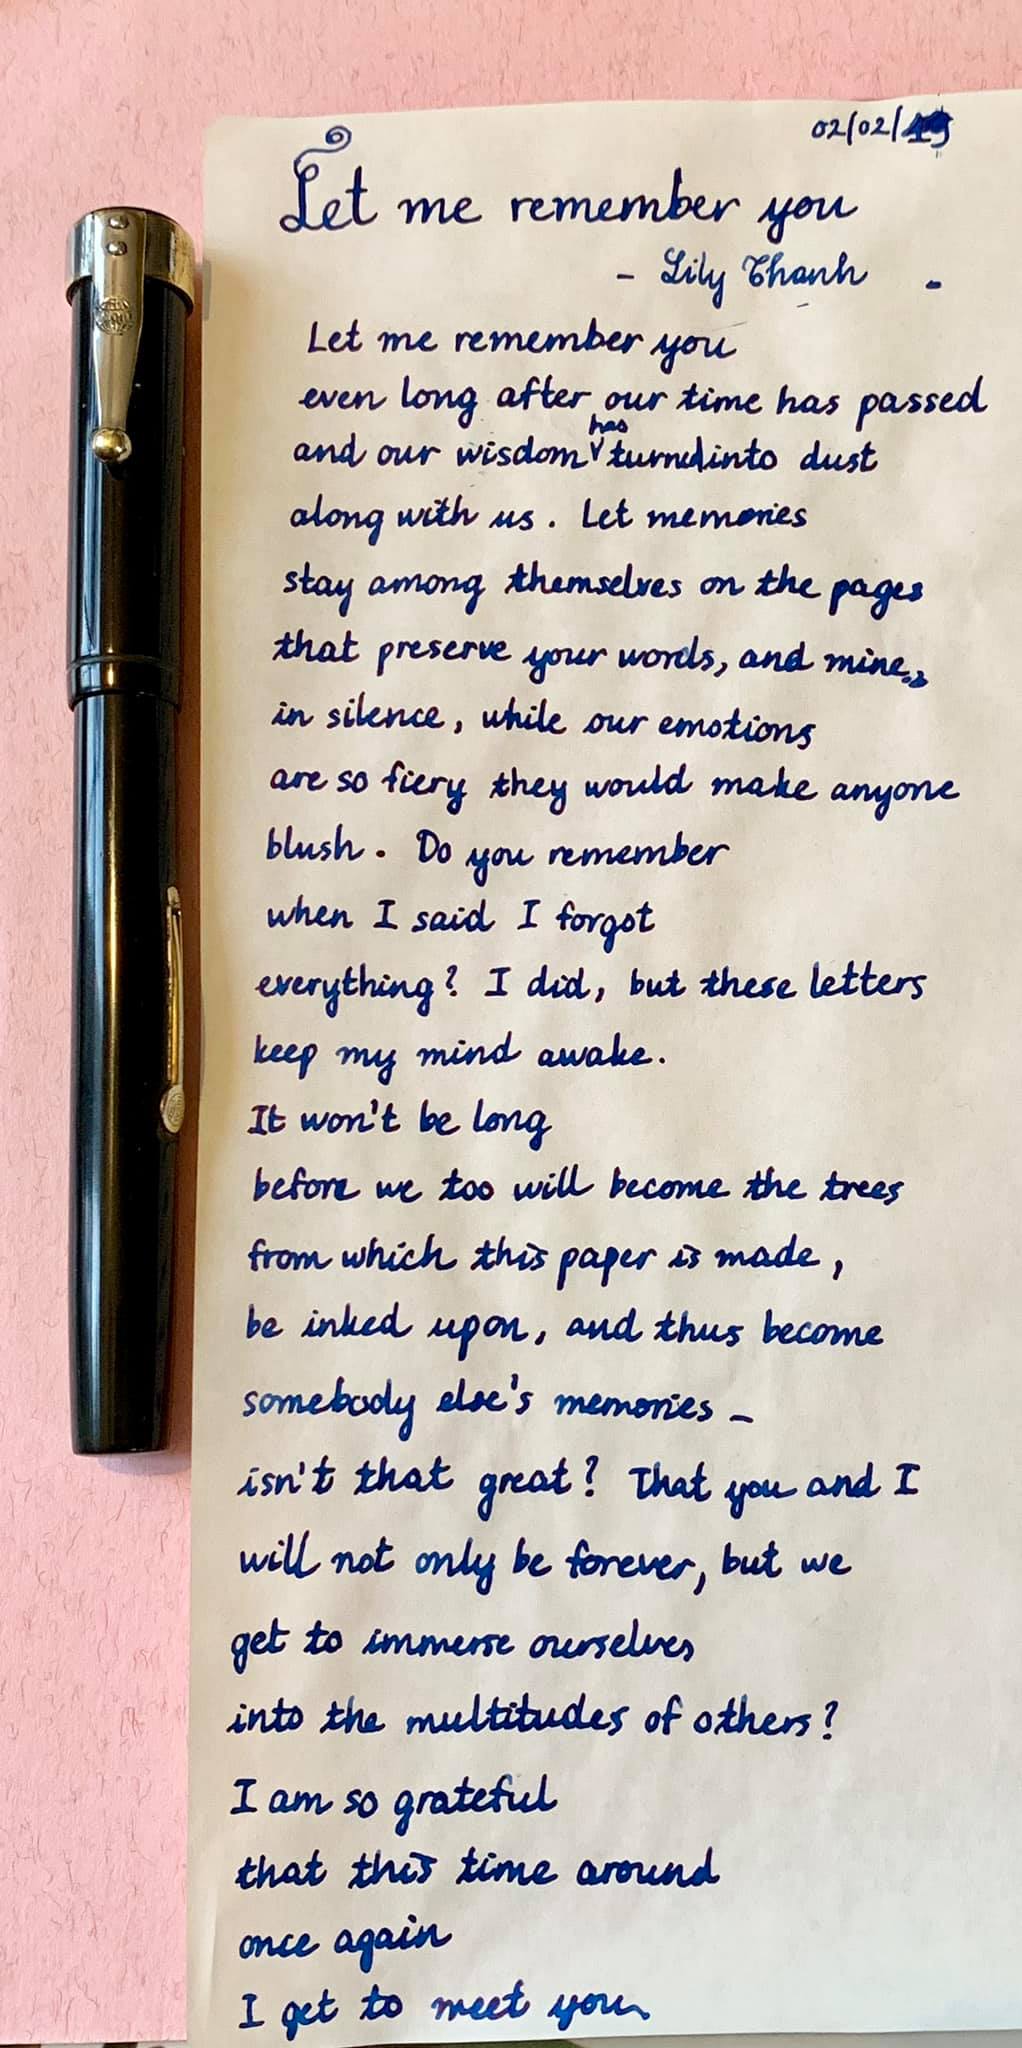 02/02/19
Let me remember you
- Lily Thanh -
Let me remember you
even long after our time has passed
and our wisdom has turned into dust
along with us. Let memories
stay among themselves on the pages
that preserve your words, and mine,
in silence, while our emotions
are so fiery they would make anyone
blush. Do you remember
when I said I forgot
everything? I did, but these letters
keep my mind awake.
It won't be long
before we too will become the trees
from which this paper is made,
be inked upon, and thus become
somebody else's memories –
isn't that great? That you and I
will not only be forever, but we
get to immerse ourselves
into the multitudes of others?
I am so grateful
that this time around
once again
I get to meet you